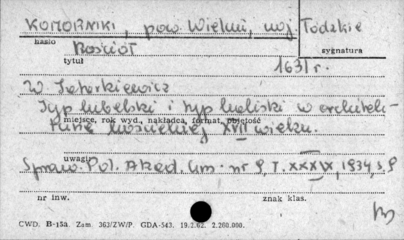 KOMORNIKI, pow. Wieluń, woj. Łódzkie
hasło
Kościół
sygnatura
tytuł
1631 r.
W Tatarkiewicz
Typ lubelski i typ kaliski w architek-
miejsce, rok wyd., nakładca, format, objętość
turze kościelnej XVII wieku.
uwagi
Spraw. Pol. Akad. Um. nr 8, T. XXXIX, 1934, s. 8
nr inw.
znak klas.
CWD. B-15a. Zam. 363/ZW/P. GDA-543. 19.2.62. 2.260.000.